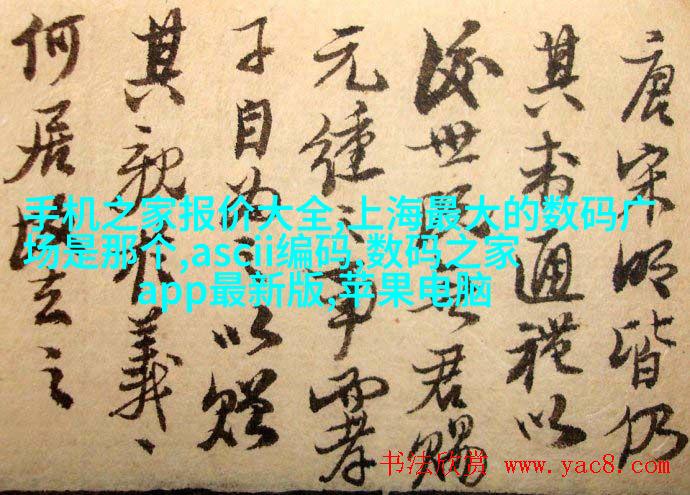 唐宋明皆仍
其通禮以
後世既無君賜
元纁之事而孝
子自為之以贈
其親義
何居去之
手机之家报价大全,上海最大的数码广
场是那个,ascii编码,数码之家
app最新版,苹果电脑
书法欣赏 www.yac8.com